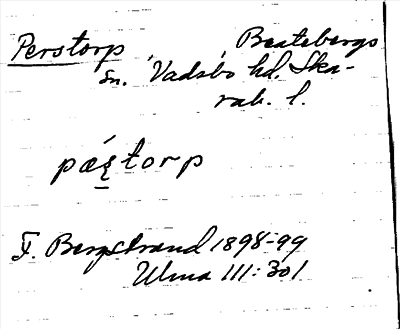 Perstorp, Beatebergs
sn. Vadsbo hd. Ska-
rab. l.
pǽʂtorp
F. Bergstrand 1898-99
Ulma 111:301